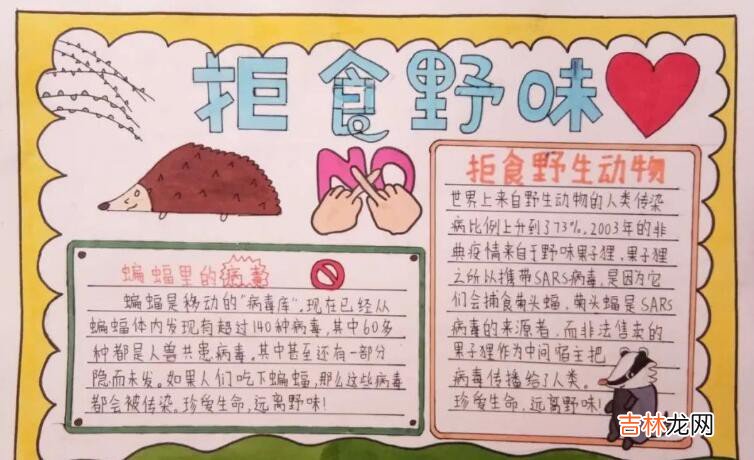 拒食野味
NO
蝙蝠里的病毒
蝙蝠是移动的“病毒库”，现在已经从
蝙蝠体内发现有超过140种病毒，其中60多
种都是人兽共患病毒。其中甚至还有一部分
隐而未发。如果人们吃下蝙蝠，那么这些病毒
都会被传染。珍爱生命，远离野味！
拒食野生动物
世界上来自野生动物的人类传染
病比例上升到了73%，2003年的非
典疫情来自于野味果子狸，果子狸
之所以携带SARS病毒，是因为它
们会捕食菊头蝠，菊头蝠是SARS
病毒的来源者，而非法售卖的
果子狸作为中间宿主把
病毒传播给了人类。
珍爱生命，远离野味！
吉林龙网